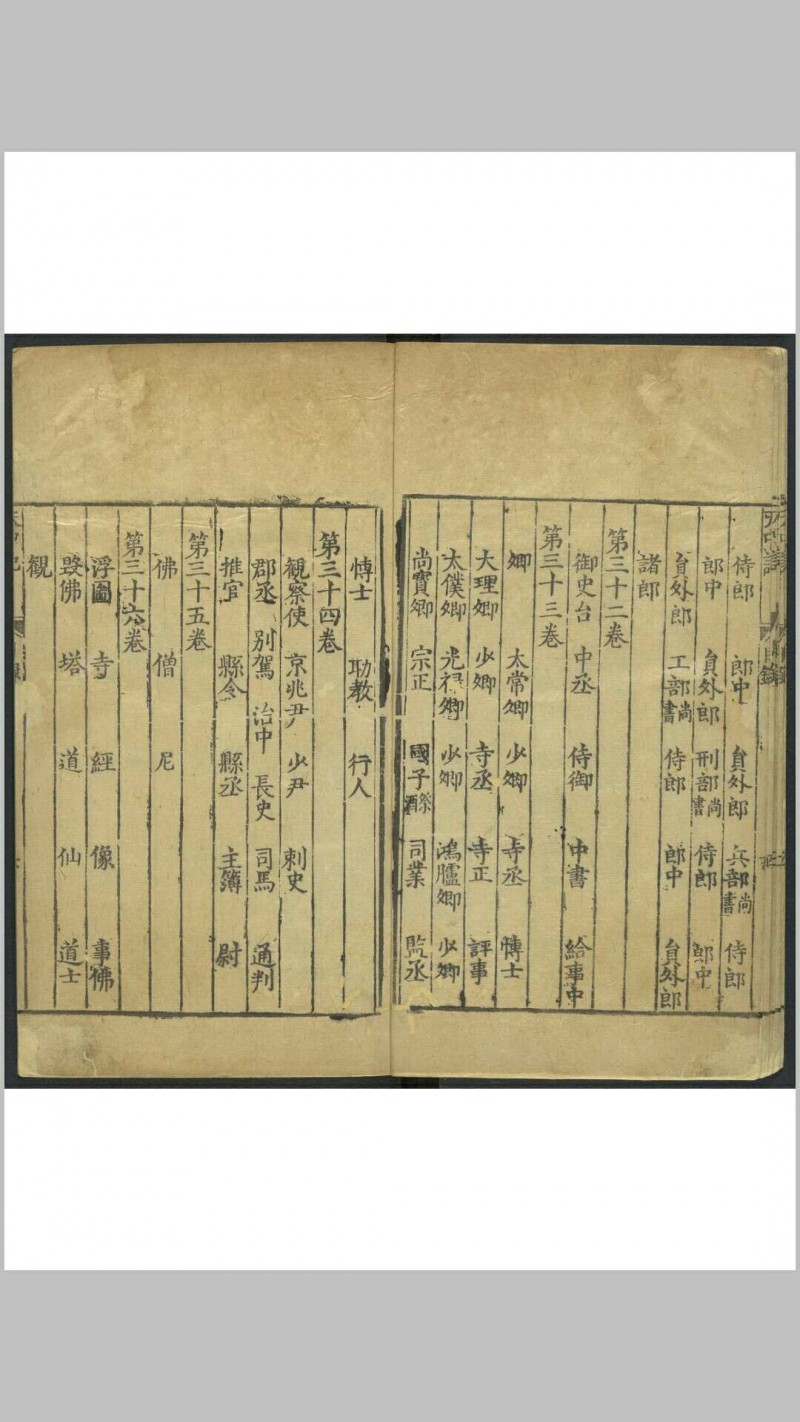 侍郎 郎中 員外郎 兵部尚書 侍郎
郎中 員外郎 刑部尚書 侍郎 郎中
員外郎 工部尚書 侍郎 郎中 員外郎
諸郎
第三十二卷
御史台 中丞 侍御 中書 給事中
第三十三卷
卿 太常卿 少卿 寺丞 博士
大理卿 少卿 寺丞 寺正 評事
太僕卿 光祿卿 少卿 鴻臚卿 少卿
尚寶卿 宗正 國子祭酒 司業 監丞
博士 助教 行人
第三十四卷
觀察使 京兆尹 少尹 刺史
郡丞 別駕 治中 長史 司馬 通判
推官 縣令 縣丞 主簿 尉
第三十五卷
佛 僧 尼
第三十六卷
浮圖 寺 經 像 事佛
毀佛 塔 道 仙 道士
觀